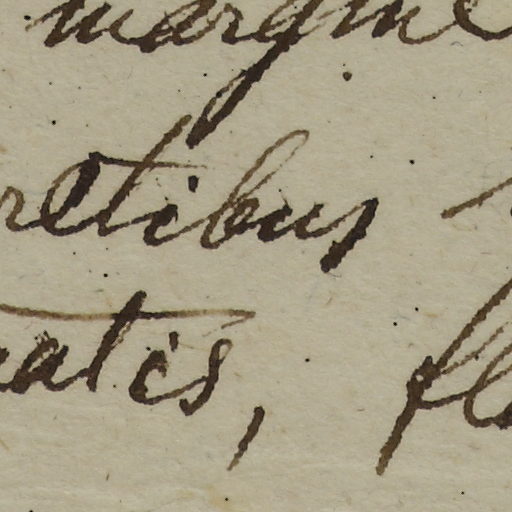 margine
retibus
atis, fl